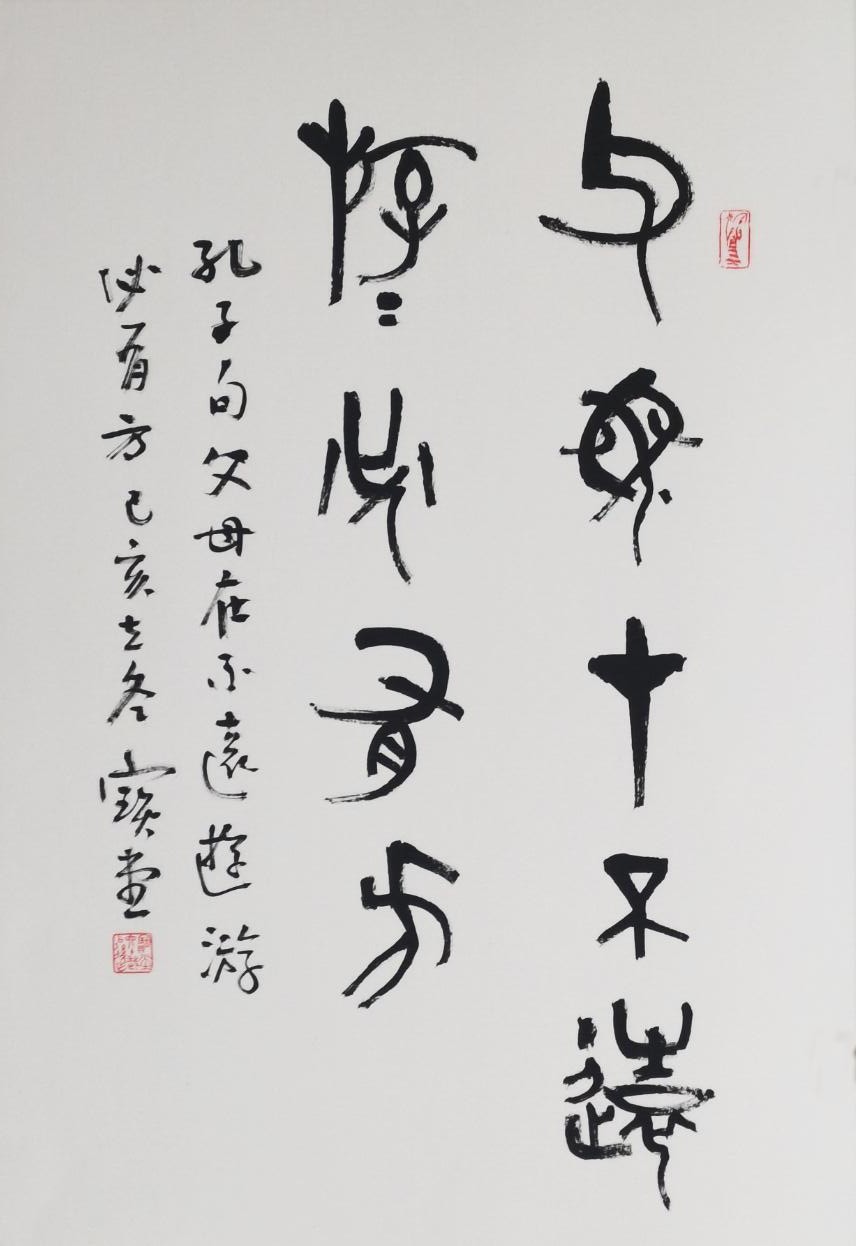 父母才不遠
斿＝必有方
孔子句父母在不遠遊游
必有方己亥立冬寶堂